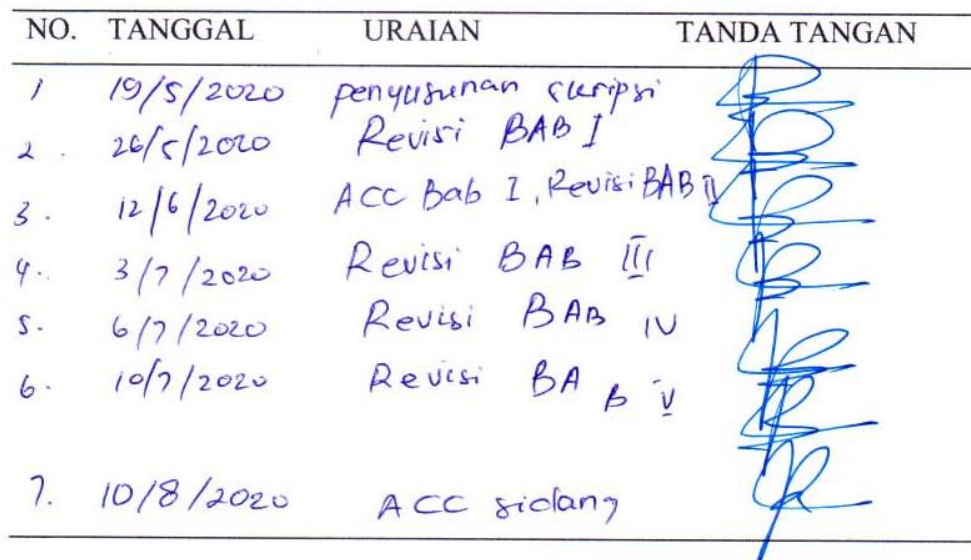 NO. TANGGAL URAIAN TANDA TANGAN
1 19/5/2020 penyusunan skripsi
2. 26/5/2020 Revisi BAB I
3. 12/6/2020 ACC Bab I, Revisi BAB II
4.. 3/7/2020 Revisi BAB III
5. 6/7/2020 Revisi BAB IV
6. 10/7/2020 Revisi BAB V
7. 10/8/2020 ACC sidang